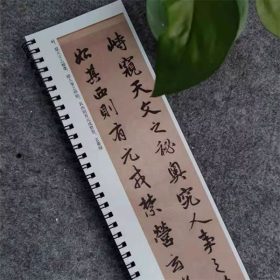 峙窺天文之秘奥究人事之
始其西則有元戎禁營玄